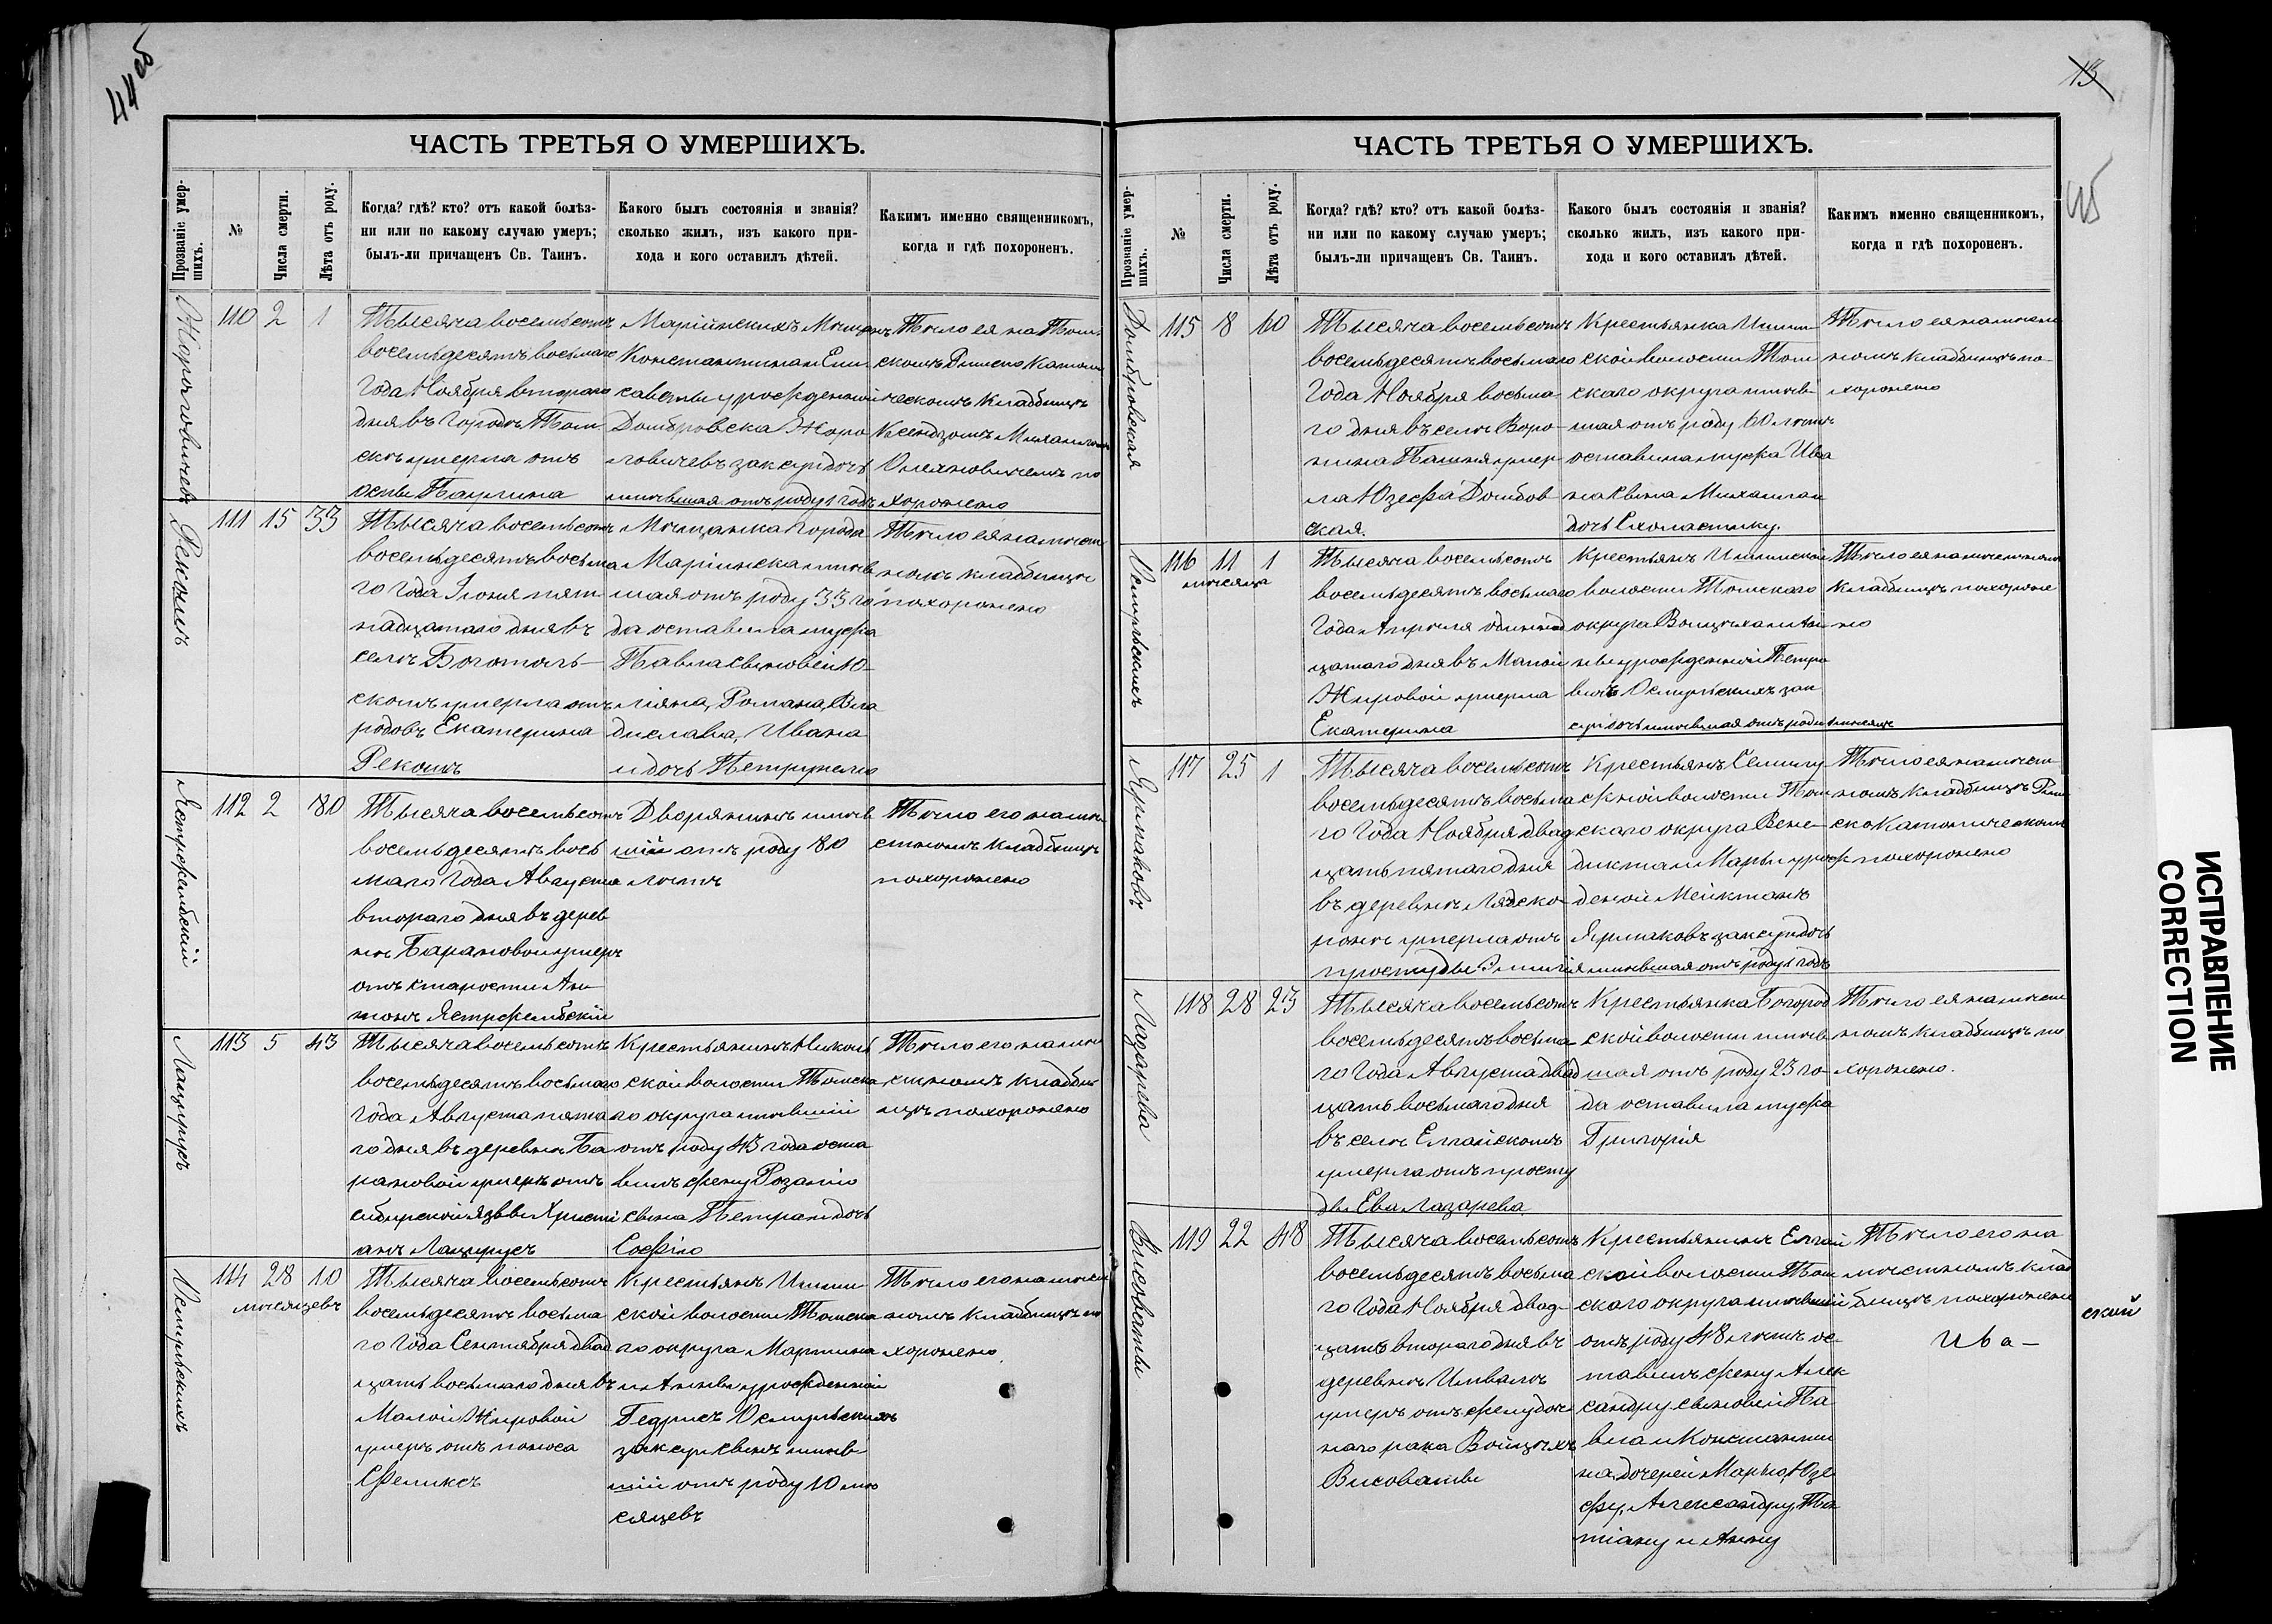 44 об
ЧАСТЬ ТРЕТЬЯ О УМЕРШИХЪ.
Прозваніе умер-
шихъ.
№
Числа смерти.
Лѣта отъ роду.
Когда? гдѣ? кто? отъ какой болѣз-
ни или по какому случаю умеръ;
былъ-ли причащенъ Св. Таинъ.
Какого былъ состоянія и званія?
сколько жилъ, изъ какого при-
хода и кого оставилъ дѣтей.
Каким именно священникомъ,
когда и гдѣ похороненъ.
110 2 1
Тысяча восемьсотъ
восемьдесятъ восьмаго
года Ноября втораго
дня въ городѣ Том
скѣ умерла отъ
оспы Паулина
Маріинскихъ Мѣщанъ
Константина и Ели
саветы урожденной
Домбровска
законная дочь
имѣвшая отъ роду 1 годъ
Тѣло ея на Том
скомъ Римско Католи
ческомъ кладбищѣ
Ксендзомъ
по
хоронено
Рекошъ
111 15 33
Тысяча восемьсотъ
восемьдесятъ восьма
го года Іюня пят
надцатаго дня въ
селѣ Боготоль
скомъ умерла отъ
родовъ Екатерина
Рекошъ
Мѣщанка города
Маріинска имѣв
шая отъ роду 33 го
да оставила мужа
Павла сыновей Ю
ліяна, Романа, Вла
дислава, Ивана
и дочь Петрунелю
Тѣло ея на мѣст
номъ кладбищѣ
похоронено
Ястржембскій
112 2 80
Тысяча восемьсотъ
восемьдесятъ вось
маго года Августа
втораго дня въ дерев
нѣ Барановой умеръ
отъ старости Ан
тонъ Ястржембскій
Дворянинъ имѣв
шій отъ роду 80
лѣтъ
Тѣло его на мѣ
стномъ кладбищѣ
похоронено
Лацурусъ
113 5 43
Тысяча восемьсотъ
восемьдесятъ восьмаго
года Августа пята
го дня въ деревнѣ Ба
рановой умеръ отъ
сибирской язвы Христі
анъ Лацурусъ
Крестьянинъ Николь
ской волости Томска
го округа имѣвшій
отъ роду 43 года оста
вилъ жену Розалію
сына Петра и дочь
Софію
Тѣло его на мѣ
стномъ кладби
щѣ похоронено
114 28 10
мѣсяцевъ
Тысяча восемьсотъ
восемьдесятъ восьма
го года Сентября двад
цать восьмаго дня въ
Малой Жировой
умеръ отъ поноса
Феликсъ
Крестьянъ Ишим
ской волости Томска
го округа Мартина
и Анны урожденной
Гедрисъ
зак сынъ имѣв
шій отъ роду 10 мѣ
сяцевъ
Тѣло его на мѣст
номъ кладбищѣ по
хоронено
13
45
ЧАСТЬ ТРЕТЬЯ О УМЕРШИХЪ.
Прозваніе умер-
шихъ.
№
Числа смерти.
Лѣта отъ роду.
Когда? гдѣ? кто? отъ какой болѣз-
ни или по какому случаю умеръ;
былъ-ли причащенъ Св. Таинъ.
Какого былъ состоянія и званія?
сколько жилъ, изъ какого при-
хода и кого оставилъ дѣтей.
Каким именно священникомъ,
когда и гдѣ похороненъ.
Домбровская
115 8 60
Тысяча восемьсотъ
восемьдесятъ восьмаго
года Ноября восьма
го дня въ селѣ Воро-
нина Пашня умер
ла Юзефа Домбов
ская.
Крестьянка Ишим
ской волости Том
скаго округа имѣв-
шая отъ роду 60 лѣтъ
оставила мужа Ива
на сына Михаила и
дочь Схоластыку.
Тѣло ея на мѣст
номъ кладбищѣ по-
хоронено
116 11 1
мѣсяца
Тысяча восемьсотъ
восемьдесятъ восьмаго
года Апрѣля одиннад
цатаго дня въ Малой
Жировой умерла
Екатерина
Крестьянъ Ишимской
волости Томскаго
округа Войцѣха и Ан
ны урожденной Петро
вичъ
имѣвшая отъ роду мѣсяцъ
Тѣло ея на мѣстномъ
кладбищѣ похороне
но
Ярмаковъ
117 25 1
Тысяча восемьсотъ
восемьдесятъ восьма
го года Ноября двад
цать пятаго дня
въ деревнѣ
умерла отъ
простуды Эмилія
Крестьянъ Семилу
жной волости Том
скаго округа Вене-
дикта и Марьи урож
деной Мейктанъ
Ярмаковъ законная дочь
имѣвшая отъ роду 1 годъ
Тѣло ея на мѣст
номъ кладбищѣ Рим
ско Католическомъ
похоронено
Лазарева
118 28 23
Тысяча восемьсотъ
восемьдесятъ восьма
го года Августа двад
цать восьмаго дня
въ селѣ Елгайскомъ
умерла отъ просту
ды Ева Лазарева
Крестьянка Богород
ской волости имѣв
шая отъ роду 23 го-
да оставила мужа
Григорія
Тѣло ея на мѣст
номъ кладбищѣ по
хоронено.
Висоваты
119 22 48
Тысяча восемьсотъ
восемьдесятъ восьма
го года Ноября двад-
цать втораго дня въ
деревнѣ Инвалѣ
умеръ отъ желудоч
наго рака Войцѣхъ
Висоваты
Крестьянинъ Елгай
ской волости Том
скаго округа имѣвшій
отъ роду 48 лѣтъ ос
тавилъ жену Алек
сандру сыновей Па
вла и Константи
на, дочерей Марью, Юзе
фу, Александру, Та
тіану и Анну
Тѣло его на
мѣстномъ клад
бищѣ похоронено
Ива-
ский
ИСПРАВЛЕНИЕ
CORRECTION